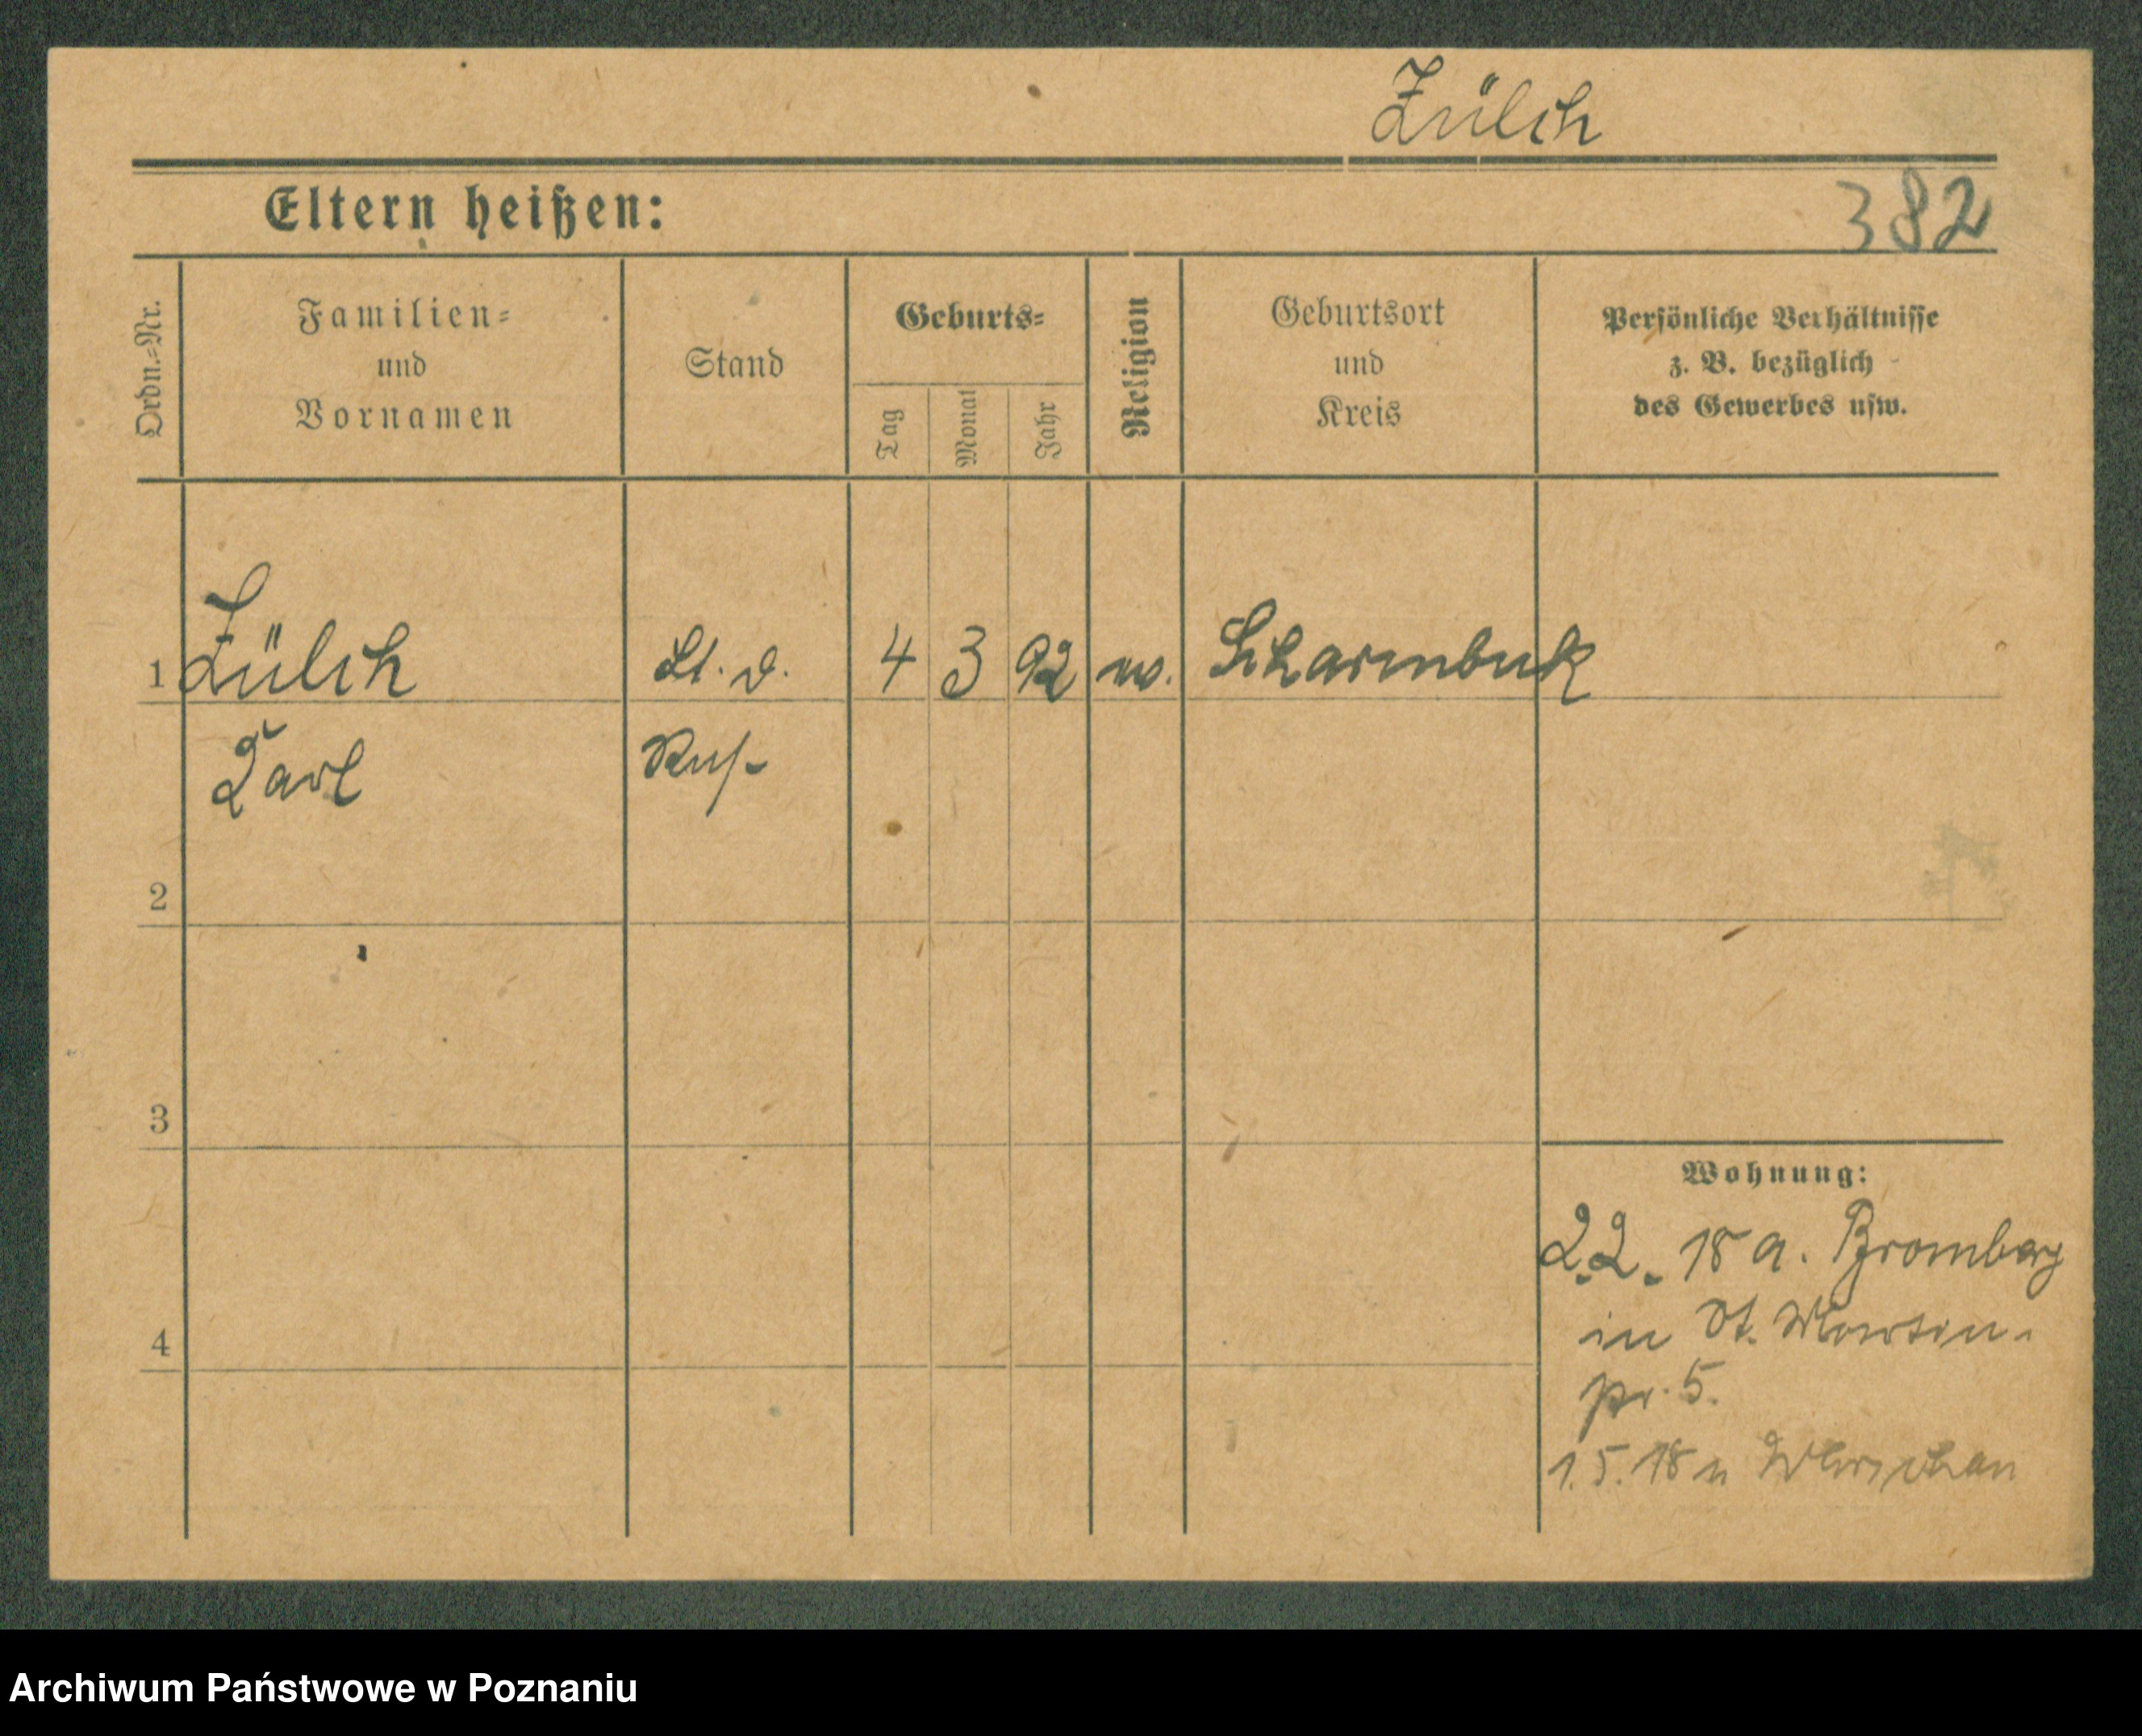 Zülch
Eltern heißen:
382
Ordn.=Nr.
Familien=
und
Vornamen
Stand
Geburts=
Tag
Monat
Jahr
Religion
Geburtsort
und
Kreis
Persönliche Verhältnisse
z. B. bezüglich
des Gewerbes usw.
1 Zülch Lt. d. 4 3 92 Scharmbeck
Carl Res.
2
3
Wohnung:
2.2. 18 a. Bromberg
in St. Martin-
4
5.
1.5.18 n Warschau
Archiwum Państwowe w Poznaniu